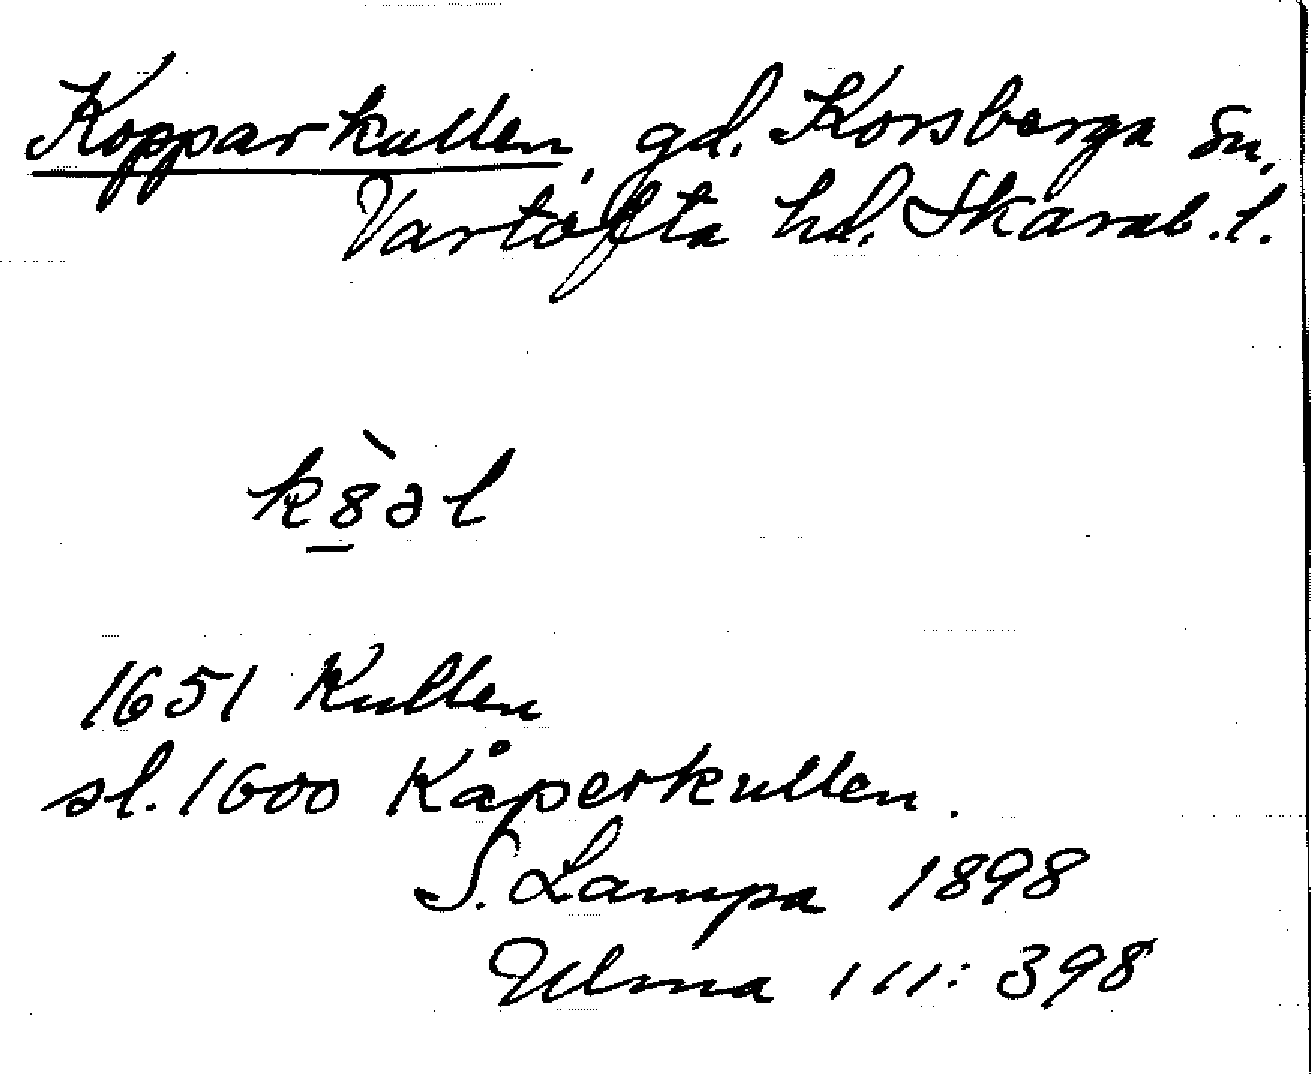 Kopparkullen, gd. Korsberga sn,
Vartofta hd. Skarab. l.
k8̀əl
1651 Kullen
sl. 1600 Kåperkullen.
S. Lampa 1898
Ulma 111:398